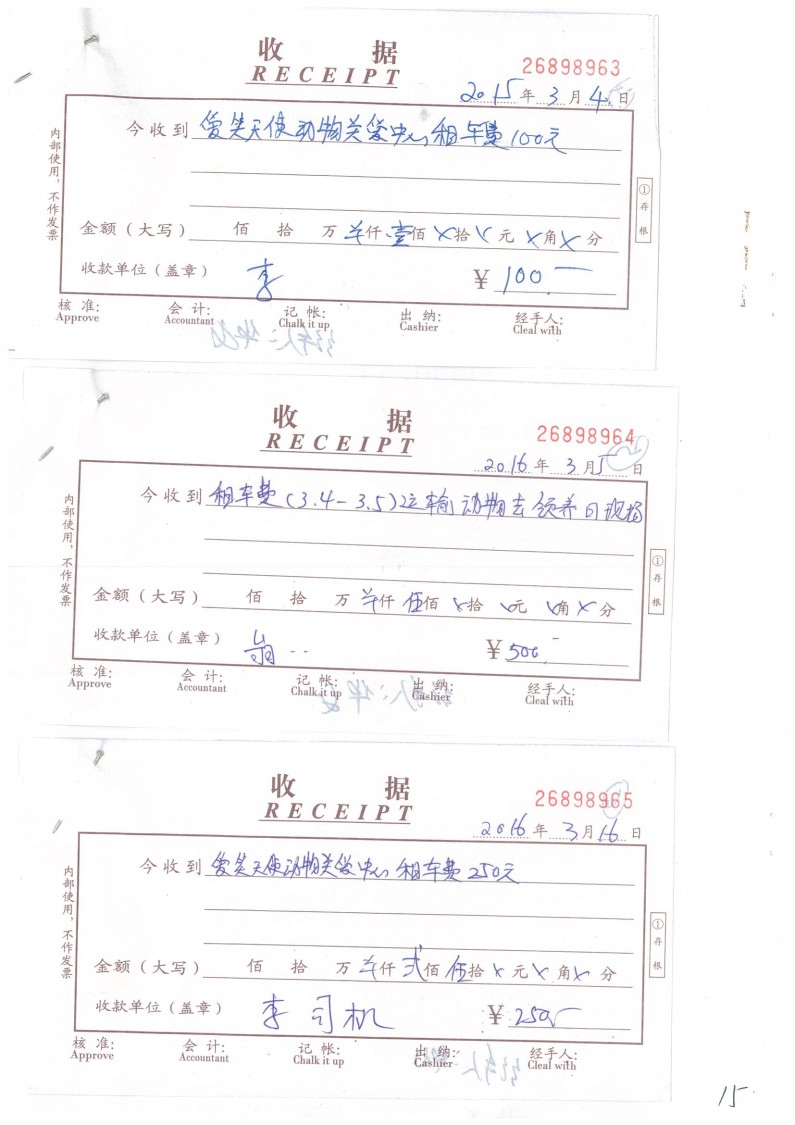 收 据
RECEIPT
26898963
2015年3月4日
今收到 爱笑天使动物关爱中心租车费100元
金额(大写) 佰 拾 万 ¥仟壹佰×拾×元×角×分
收款单位(盖章) 李 ¥100.—
内部使用,不作发票
①存根
核 准: 会 计: 记 帐: 出 纳: 经手人:
Approve Accountant Chalk it up Cashier Cleal with
收 据
RECEIPT
26898964
2016年3月5日
今收到 租车费(3.4-3.5)运输动物去领养日现场
金额(大写) 佰 拾 万 ¥仟伍佰×拾×元×角×分
收款单位(盖章) ¥500.—
内部使用,不作发票
①存根
核 准: 会 计: 记 帐: 出 纳: 经手人:
Approve Accountant Chalk it up Cashier Cleal with
收 据
RECEIPT
26898965
2016年3月16日
今收到 爱笑天使动物关爱中心租车费250元
金额(大写) 佰 拾 万 ¥仟贰佰伍拾×元×角×分
收款单位(盖章) 李司机 ¥250.—
内部使用,不作发票
①存根
核 准: 会 计: 记 帐: 出 纳: 经手人:
Approve Accountant Chalk it up Cashier Cleal with
15.